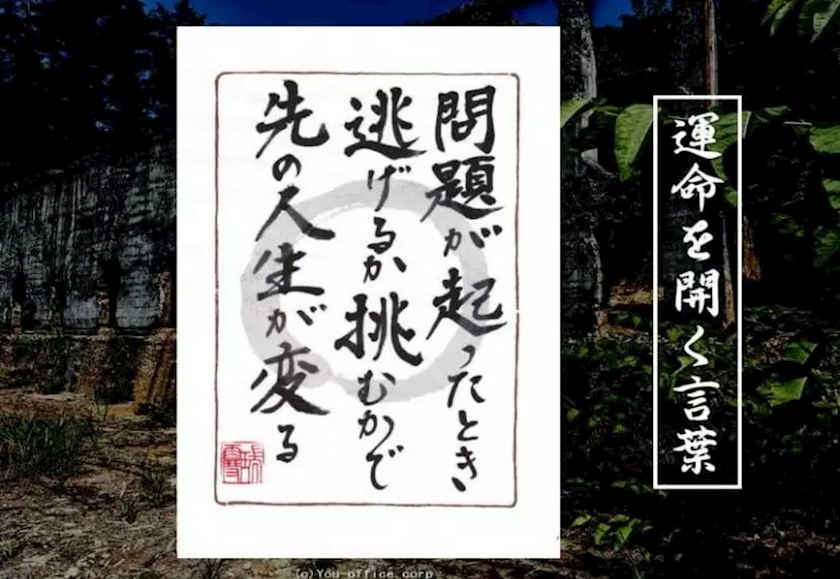 問題が起ったとき
逃げるか挑むかで
先の人生が変る
運命を開く言葉
(c)You-office.corp